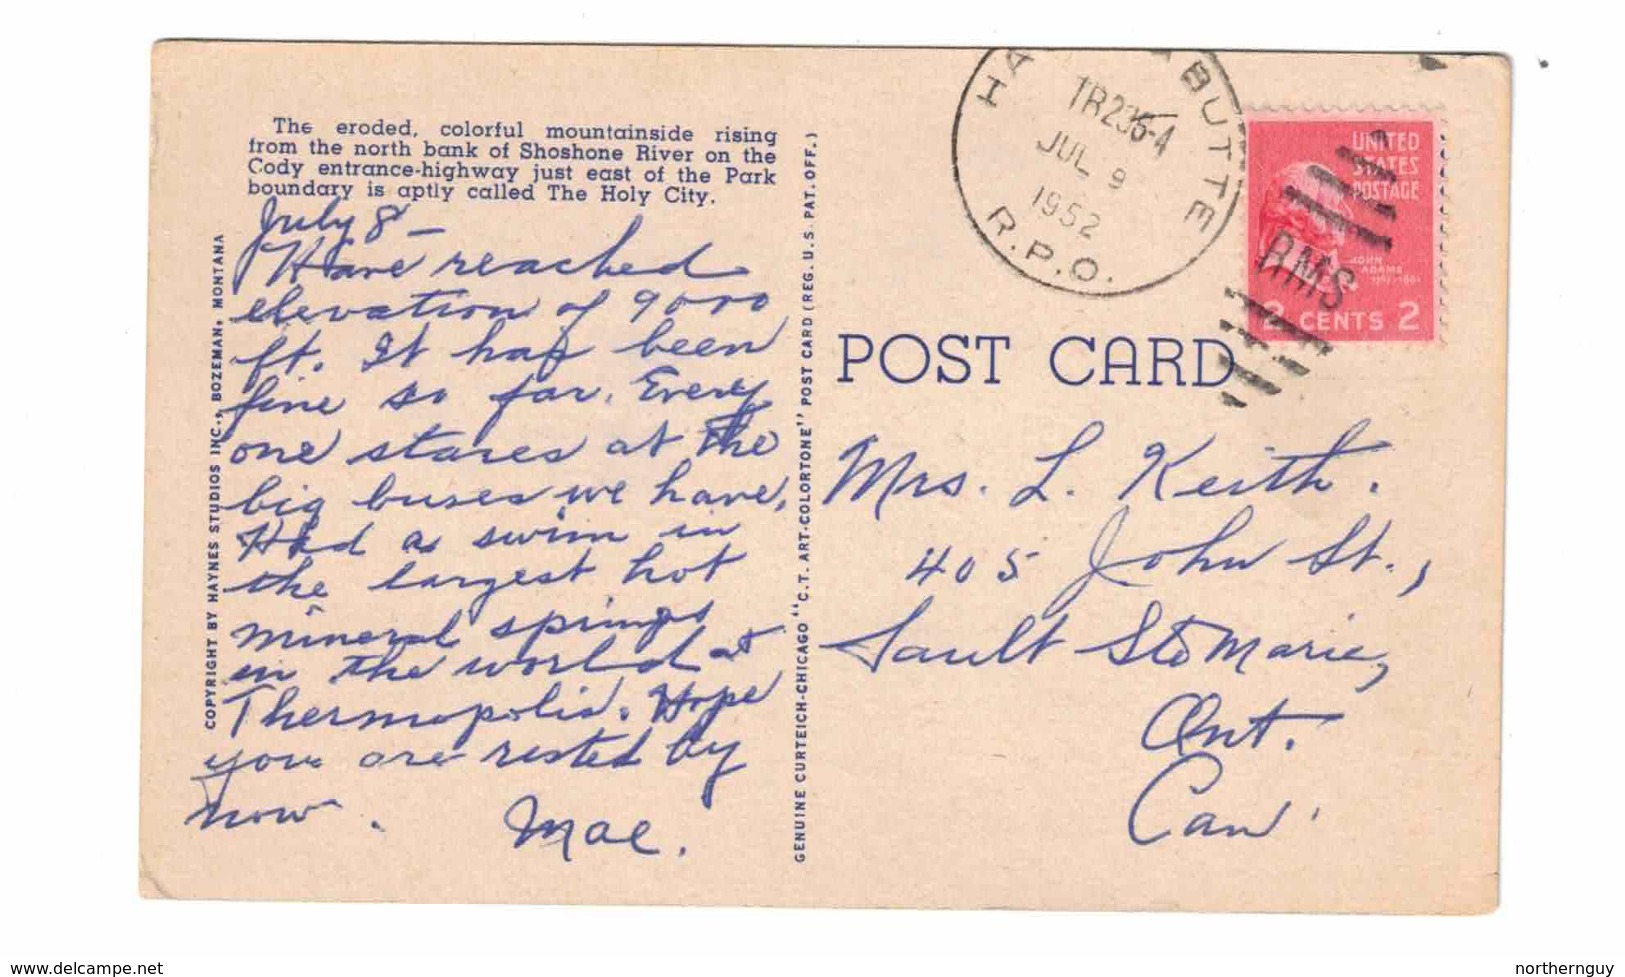 The eroded, colorful mountainside rising
from the north bank of Shoshone River on the
Cody entrance-highway just east of the Park
boundary is aptly called The Holy City.
July 8 –
Have reached
elevation of 9000
ft. It has been
fine so far. Every
one stares at the
big buses we have.
Had a swim in
the largest hot
mineral springs
in the world at
Thermopolis. Hope
you are rested by
now.
Mae.
COPYRIGHT BY HAYNES STUDIOS INC., BOZEMAN, MONTANA
GENUINE CURTEICH-CHICAGO "C.T. ART-COLORTONE" POST CARD (REG. U.S. PAT. OFF.)
BUTTE
TR235-4
JUL 9
1952
R.P.O.
UNITED
STATES
POSTAGE
JOHN
ADAMS
2 CENTS 2
RMS
POST CARD
Mrs. L. Keith.
405 John St.,
Sault Ste Marie,
Ont.
Can.
www.delcampe.net
northernguy